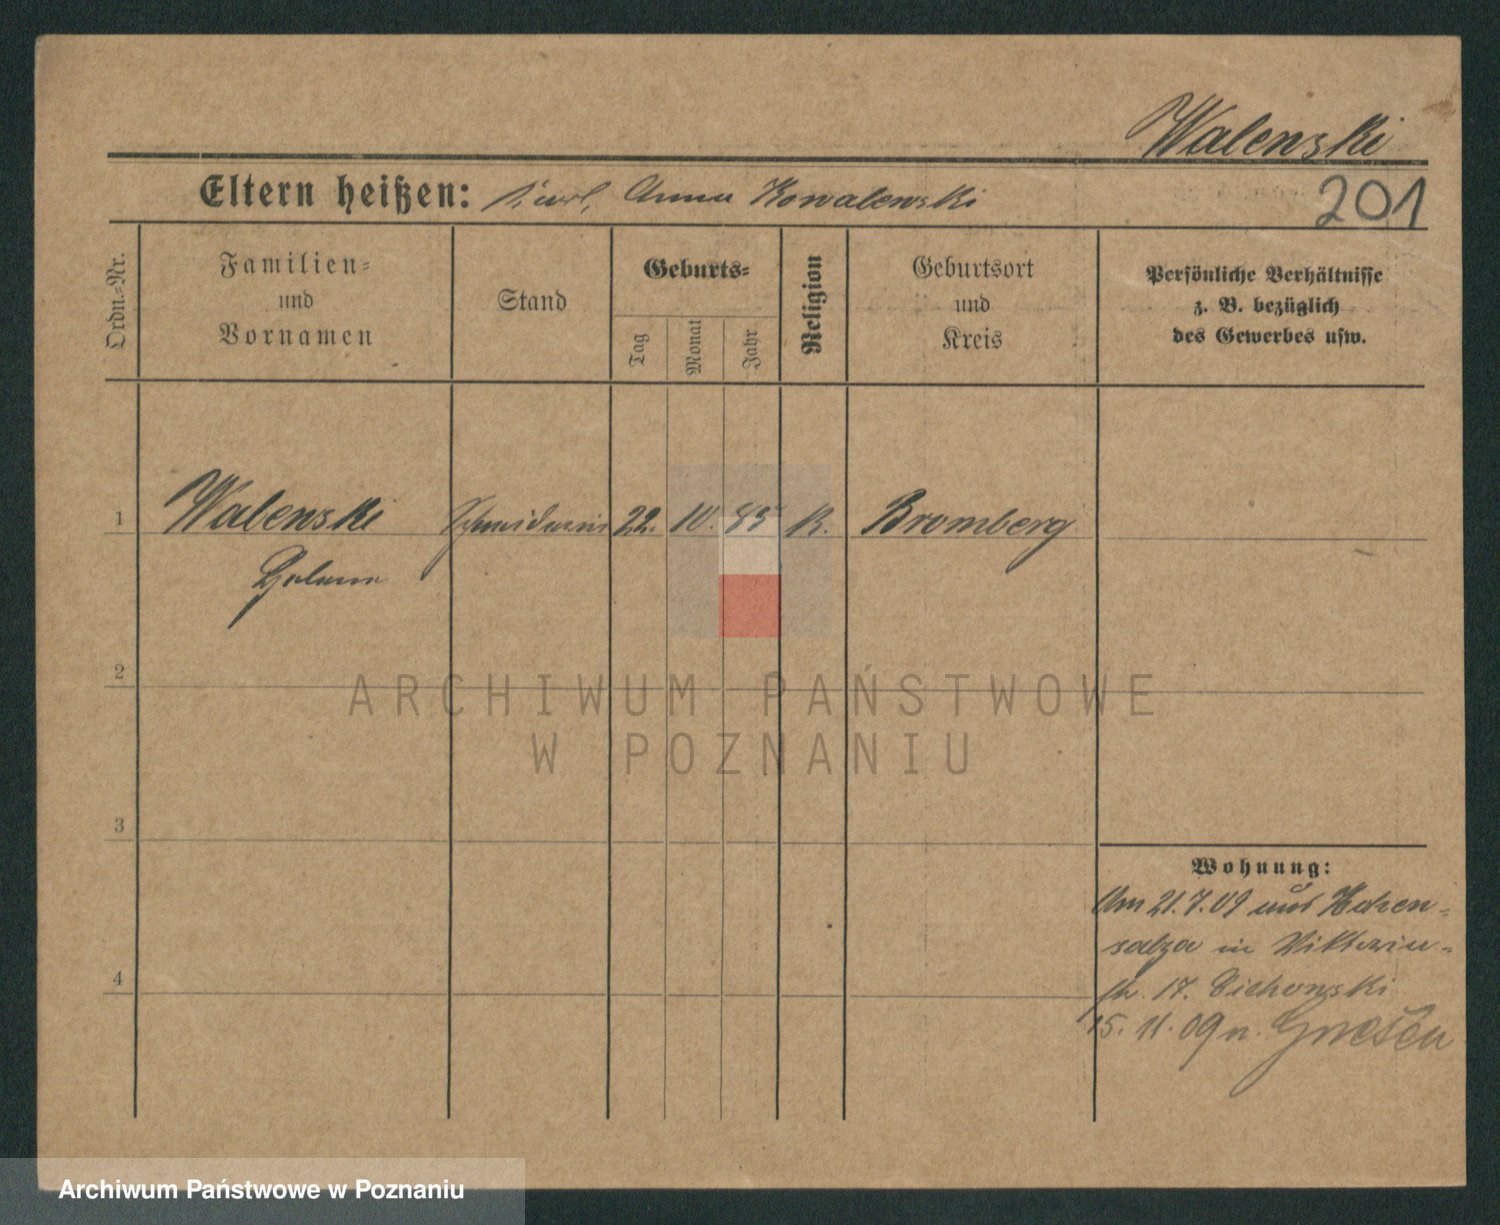 Walenski
201
Eltern heißen: Karl, Anna Kowalewski
Ordn.-Nr.
Familien-
und
Vornamen
Stand
Geburts-
Tag
Monat
Jahr
Religion
Geburtsort
und
Kreis
Persönliche Verhältnisse
z. B. bezüglich
des Gewerbes usw.
1 Walenski Schneiderin 22. 10. 85 K. Bromberg
2
3
4
Wohnung:
Am 21.7.09 aus Hohen-
salza in Viktoria-
str. 17. Cichowski
15. 11. 09 n. Gnesen
ARCHIWUM PAŃSTWOWE
W POZNANIU
Archiwum Państwowe w Poznaniu